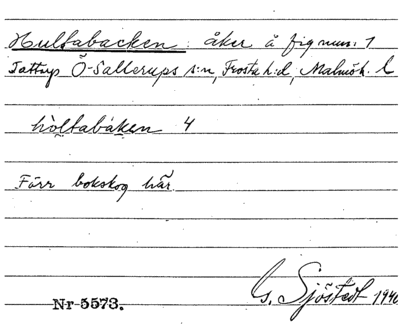 Hultabacken: åker å fig num: 1
Tattup Ö-Sallerups s:n, Frosta h:d, Malmöh. l
hòltabák̬en 4
Förr bokskog här.
G. Sjöstedt 1946
Nr 5573.